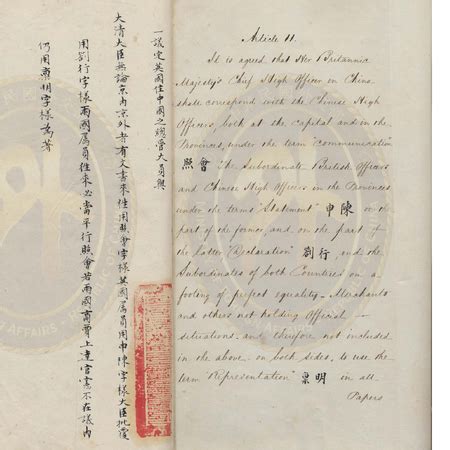 一議定英國住中國之總管大員與
大清大臣無論京內京外者有文書來往用照會字樣英國属員用申陳字樣大臣批覆
用劄行字樣兩國属員往來必當平行照會若兩國商賈上達官憲不在議內
仍用稟明字樣為著
Article 11.
It is agreed that Her Britannic
Majesty's Chief High Officer in China
shall correspond with the Chinese High
Officers, both at the capital and in the
Provinces, under the term "communication"
會照 The Subordinate British Officers
and Chinese High Officers in the Provinces
under the terms "Statement" 陳申 on the
part of the former, and on the part of
the latter "Declaration" 行劄 and the
Subordinates of both Countries on a
footing of perfect equality. Merchants
and others not holding Official
situations and therefore not included
in the above, on both sides, to use the
term "Representation" 明稟 in all
Papers